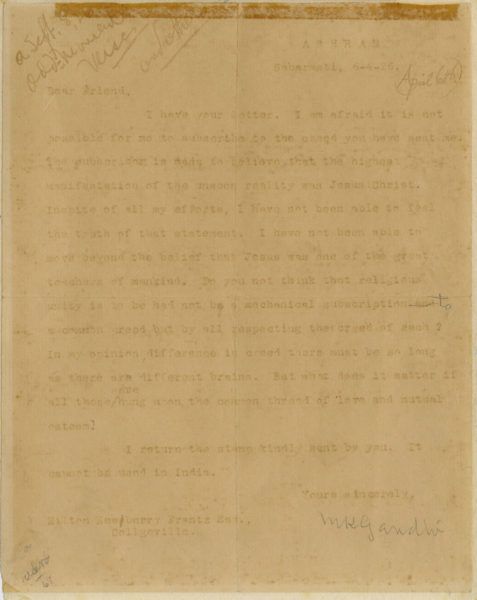 ASHRAM
Sabarmati, 6-4-26.
(April 6th)
Dear Friend,
I have your letter. I am afraid it is not
possible for me to subscribe to the creed you have sent me.
The subscriber is made to believe that the highest
manifestation of the unseen reality was Jesus Christ.
Inspite of all my efforts, I have not been able to feel
the truth of that statement. I have not been able to
move beyond the belief that Jesus was one of the great
teachers of mankind. Do you not think that religious
unity is to be had not by a mechanical subscription to
a common creed but by all respecting the creed of each ?
In my opinion difference in creed there must be so long
as there are different brains. But what does it matter if
all these are hung upon the common thread of love and mutual
esteem?
I return the stamp kindly sent by you. It
cannot be used in India.
Yours sincerely,
MKGandhi
Milton Newberry Frantz Esq.,
Collgeville.